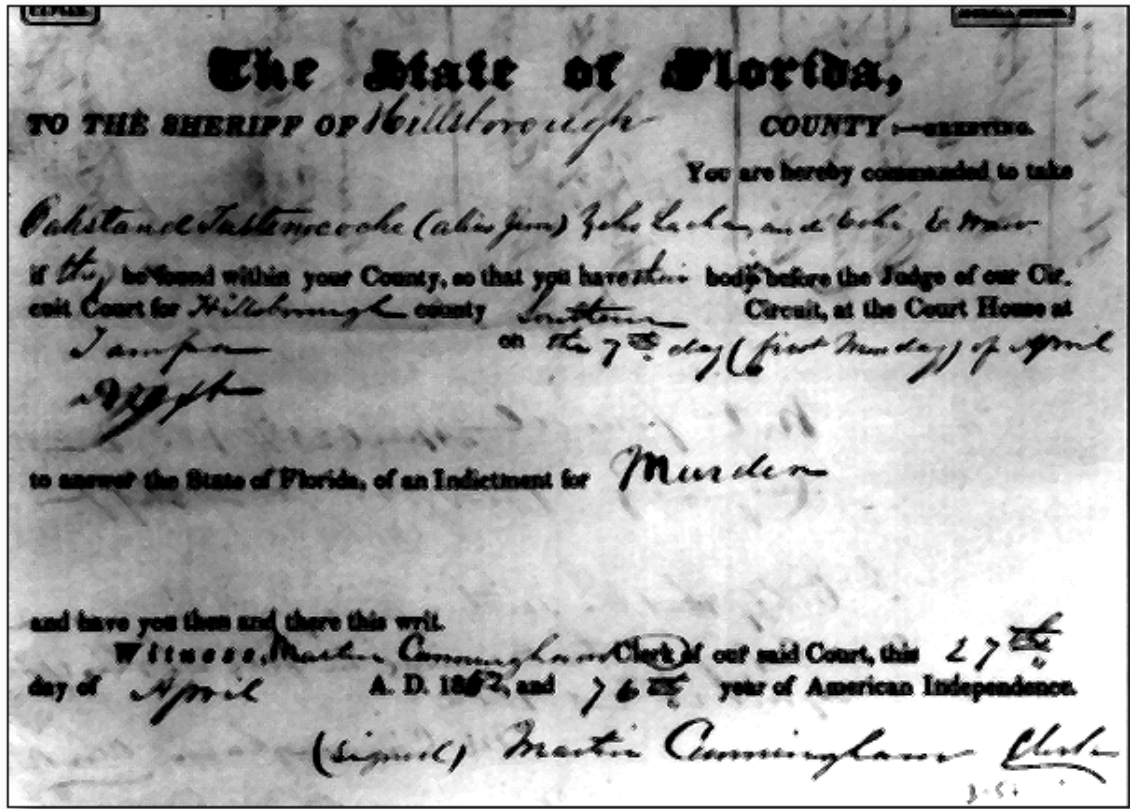 The State of Florida,
TO THE SHERIFF OF Hillsborough COUNTY :—GREETING.
You are hereby commanded to take
(alias Jim) and
if they be found within your County, so that you have their bodies before the Judge of our Cir.
cuit Court for Hillsborough county Southern Circuit, at the Court House at
Tampa on the 7th day (first Monday) of April
to answer the State of Florida, of an Indictment for Murder
and have you then and there this writ.
Witness, Martin Cunningham Clerk of our said Court, this 27th
day of April A. D. 1852, and 76th year of American Independence.
(signed) Martin Cunningham Clerk